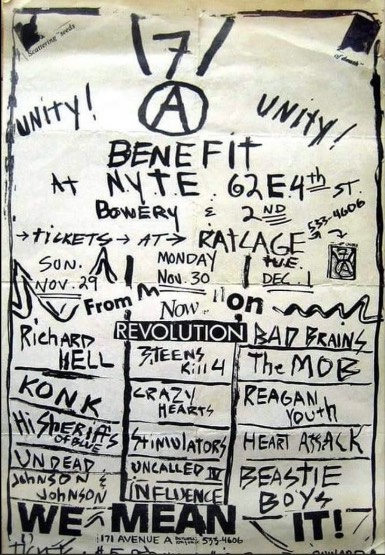 Scattering seeds
of dissent
171
A
UNITY!
UNITY!
BENEFIT
AT N.Y.T.E. 62 E. 4th ST.
BOWERY & 2ND
→TICKETS→AT→RATCAGE 533-4606
SUN. NOV. 29
MONDAY NOV. 30
TUE. DEC. 1
From Now on
REVOLUTION
Richard HELL
KONK
Hi SHERIFFS OF BLUE
UNDEAD
JOHNSON & JOHNSON
3 TEENS Kill 4
CRAZY HEARTS
Stimulators
UNCALLED IV
INFLUENCE
BAD BRAINS
The MOB
REAGAN Youth
HEART ATTACK
BEASTIE BOYS
WE MEAN IT!
171 AVENUE A 533-4606